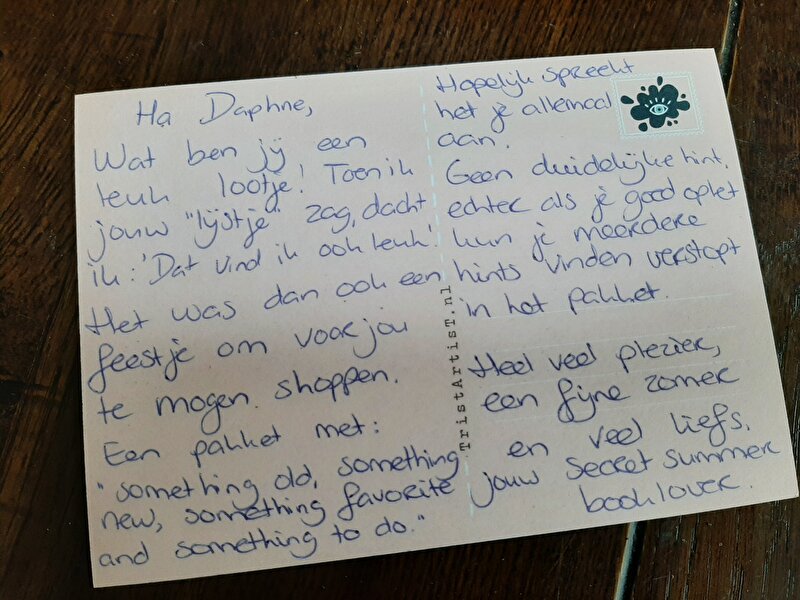 Ha Daphne,
Wat ben jij een
leuk lootje! Toen ik
jouw "lijstje" zag, dacht
ik: 'Dat vind ik ook leuk!'
Het was dan ook een
feestje om voor jou
te mogen shoppen.
Een pakket met:
"something old, something
new, something favorite
and something to do."
Hopelijk spreekt
het je allemaal
aan.
Geen duidelijke hint,
echter als je goed oplet
kun je meerdere
hints vinden verstopt
in het pakket.
Heel veel plezier,
een fijne zomer
en veel liefs,
jouw secret summer
booklover.
TristArtisT.nl